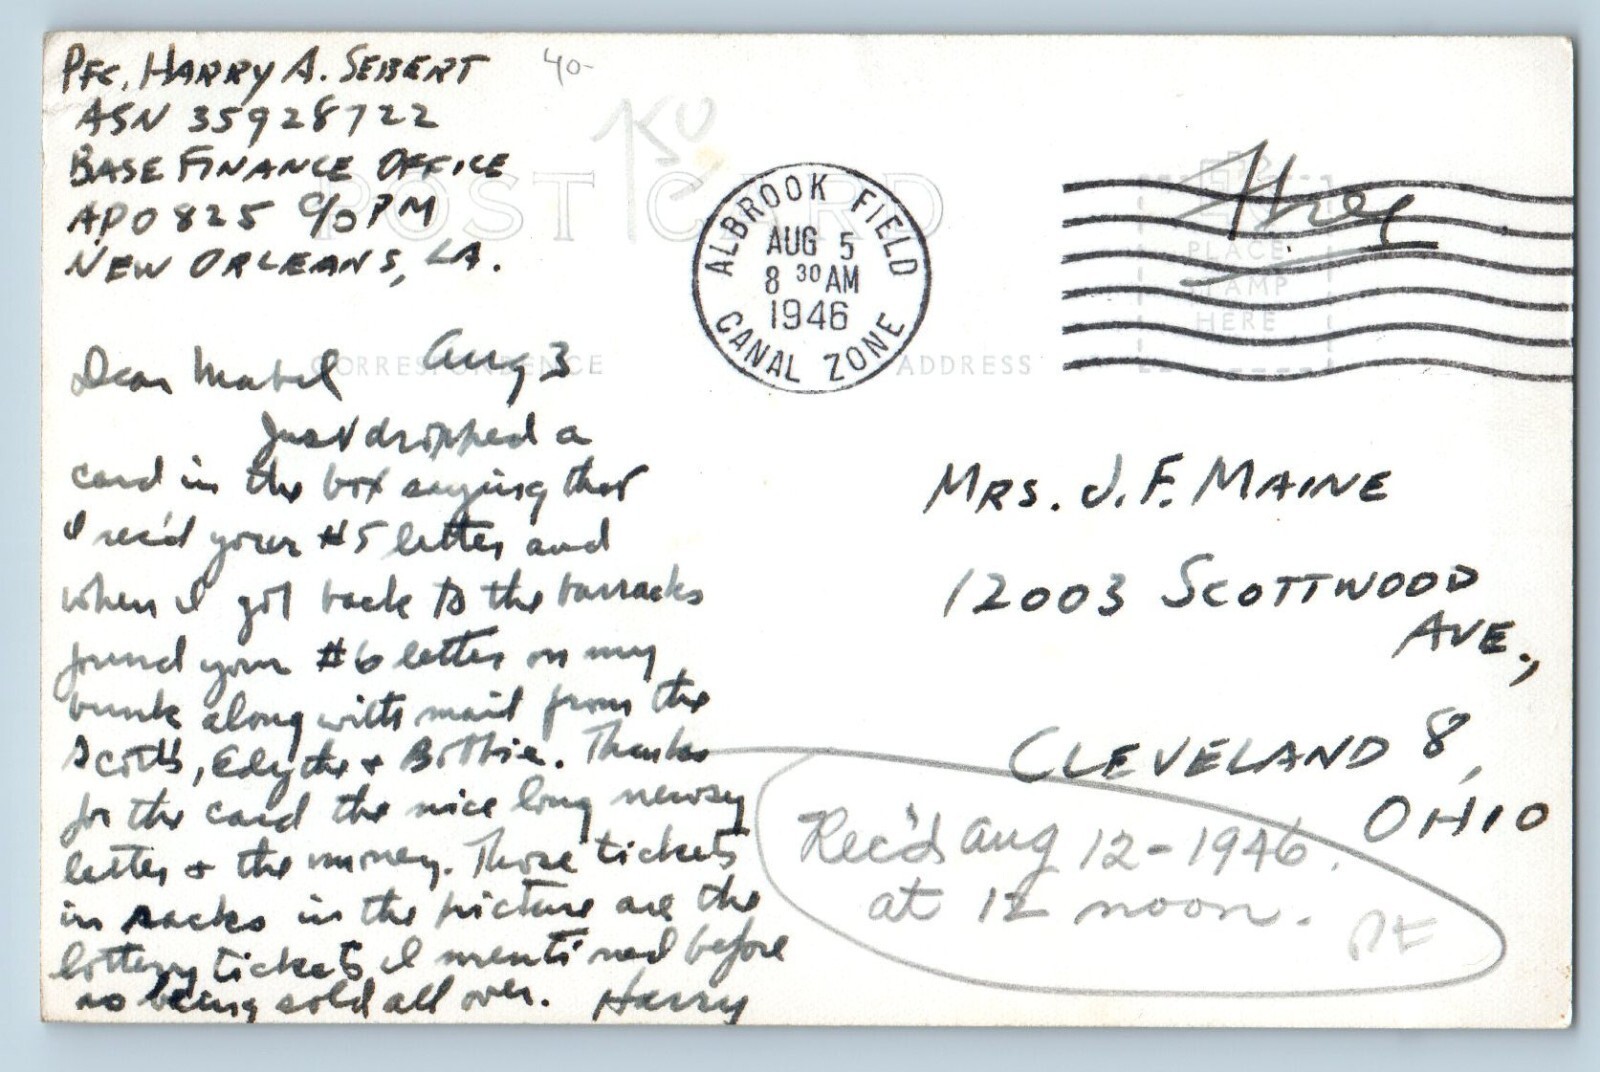 PFC. HARRY A. SEBERT
ASN 35928722
BASE FINANCE OFFICE
APO 825 C/O PM
NEW ORLEANS, LA.
40-
POST CARD
ALBROOK FIELD
AUG 5
8 30 AM
1946
CANAL ZONE
Free
PLACE
STAMP
HERE
CORRESPONDENCE
ADDRESS
Dear Mabel Aug 3
Just dropped a
card in the box saying that
I rec'd your #5 letter and
when I got back to the barracks
found your #6 letter on my
bunk along with mail from the
Scotts, Edythe + Bobbie. Thanks
for the card the nice long newsy
letter + the money. Those tickets
in racks in the picture are the
lottery tickets I mentioned before
as being sold all over. Harry
MRS. J. F. MAINE
12003 SCOTTWOOD
AVE.,
CLEVELAND 8,
OHIO
Rec'd Aug 12-1946.
at 12 noon.